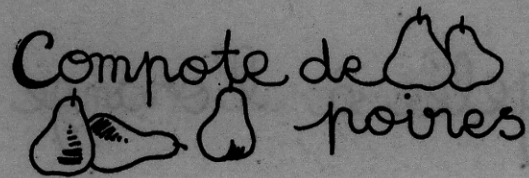 Compote de
poires